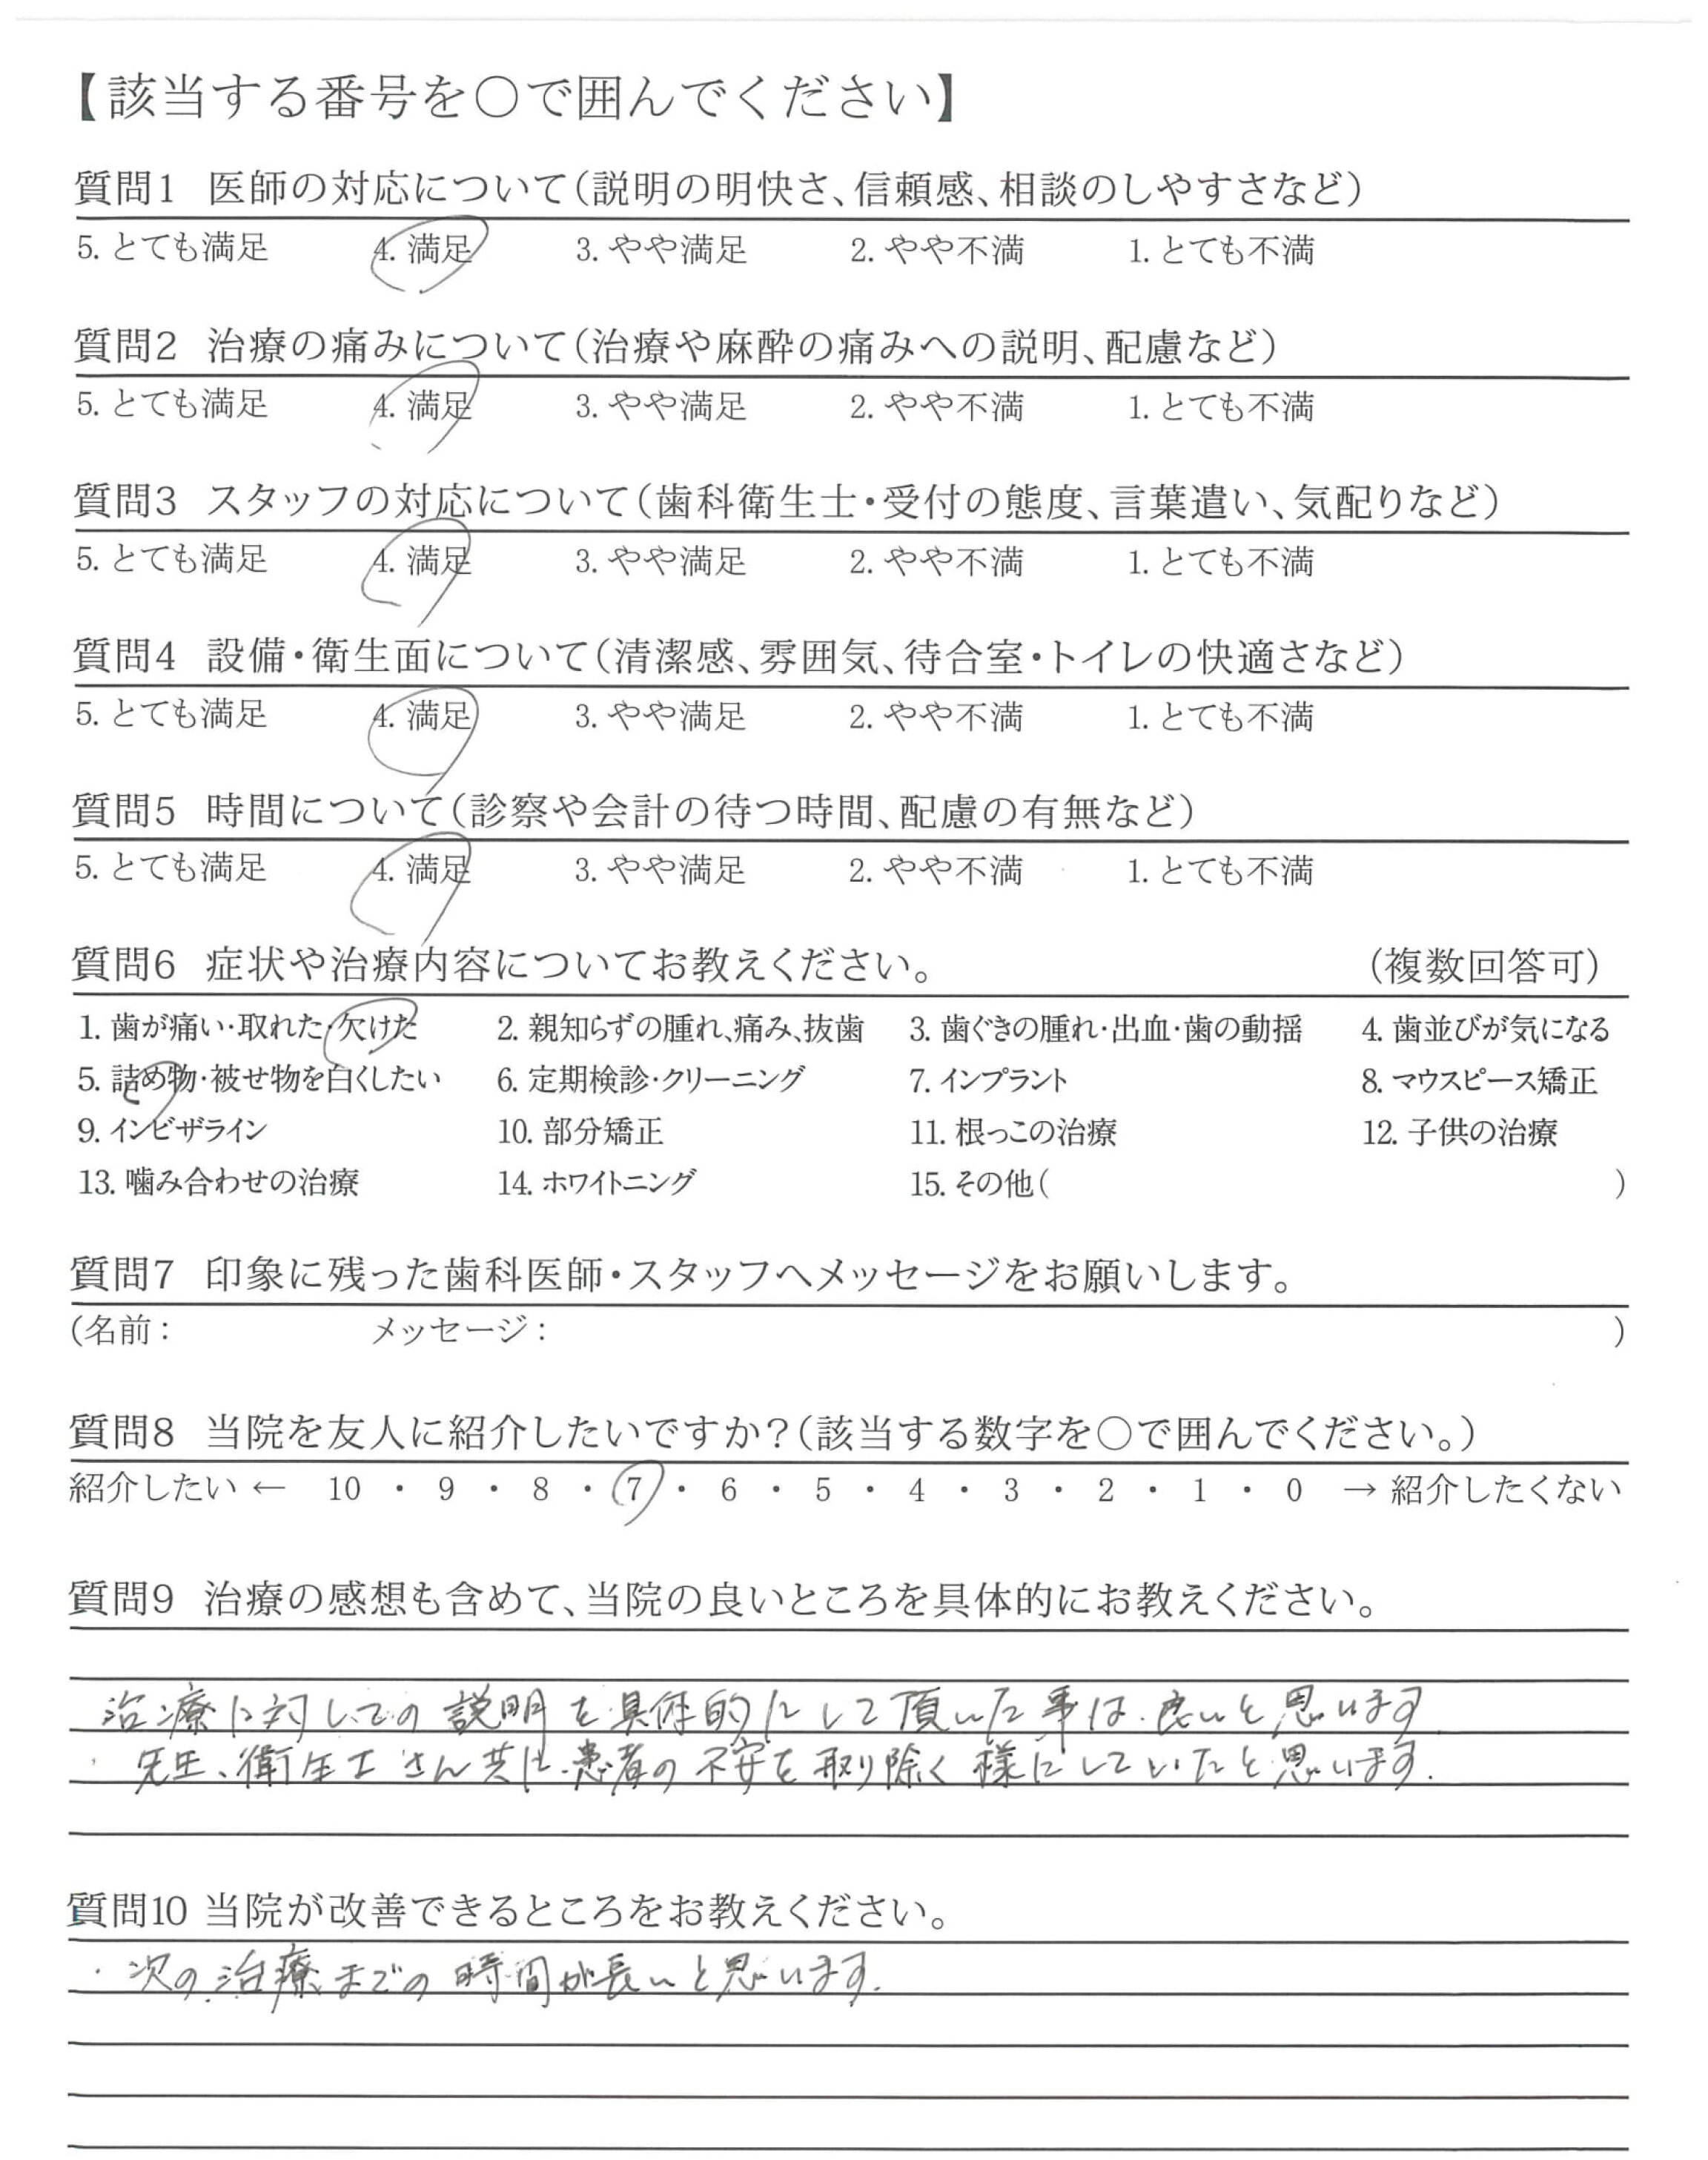 【該当する番号を○で囲んでください】
質問1 医師の対応について(説明の明快さ、信頼感、相談のしやすさなど)
5. とても満足 4. 満足 3. やや満足 2. やや不満 1. とても不満
質問2 治療の痛みについて(治療や麻酔の痛みへの説明、配慮など)
5. とても満足 4. 満足 3. やや満足 2. やや不満 1. とても不満
質問3 スタッフの対応について(歯科衛生士・受付の態度、言葉遣い、気配りなど)
5. とても満足 4. 満足 3. やや満足 2. やや不満 1. とても不満
質問4 設備・衛生面について(清潔感、雰囲気、待合室・トイレの快適さなど)
5. とても満足 4. 満足 3. やや満足 2. やや不満 1. とても不満
質問5 時間について(診察や会計の待つ時間、配慮の有無など)
5. とても満足 4. 満足 3. やや満足 2. やや不満 1. とても不満
質問6 症状や治療内容についてお教えください。 (複数回答可)
1. 歯が痛い・取れた・欠けた 2. 親知らずの腫れ、痛み、抜歯 3. 歯ぐきの腫れ・出血・歯の動揺 4. 歯並びが気になる
5. 詰め物・被せ物を白くしたい 6. 定期検診・クリーニング 7. インプラント 8. マウスピース矯正
9. インビザライン 10. 部分矯正 11. 根っこの治療 12. 子供の治療
13. 噛み合わせの治療 14. ホワイトニング 15. その他( )
質問7 印象に残った歯科医師・スタッフへメッセージをお願いします。
(名前: メッセージ: )
質問8 当院を友人に紹介したいですか?(該当する数字を○で囲んでください。)
紹介したい ← 10 ・ 9 ・ 8 ・ 7 ・ 6 ・ 5 ・ 4 ・ 3 ・ 2 ・ 1 ・ 0 → 紹介したくない
質問9 治療の感想も含めて、当院の良いところを具体的にお教えください。
治療に対しての説明を具体的にして頂いた事は良いと思います
・先生、衛生士さん共に患者の不安を取り除く様にしていたと思います.
質問10 当院が改善できるところをお教えください。
・次の治療までの時間が長いと思います.